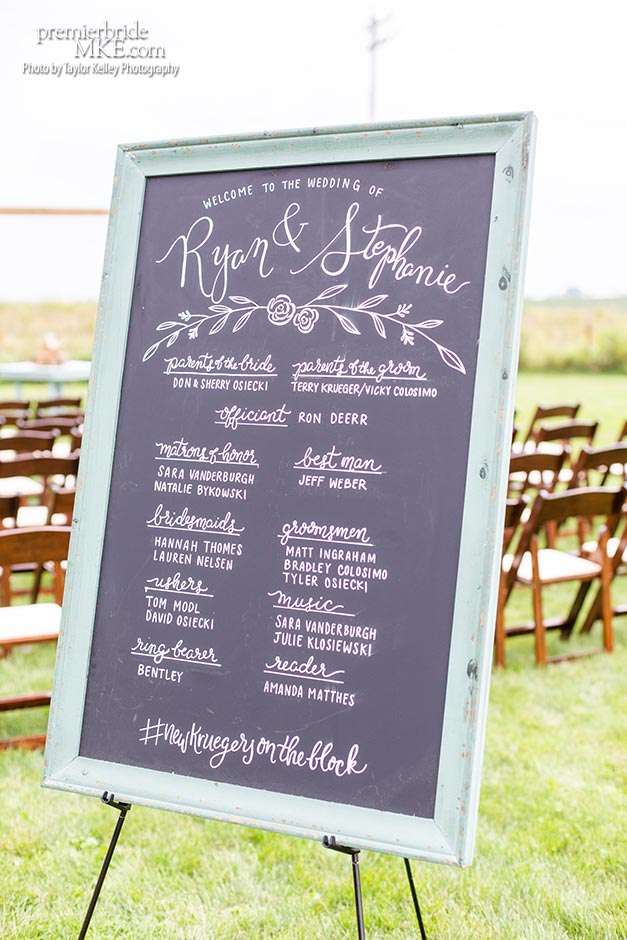 premierbride
MKE.com
Photo by Taylor Kelley Photography
WELCOME TO THE WEDDING OF
Ryan & Stephanie
parents of the bride
DON & SHERRY OSIECKI
parents of the groom
TERRY KRUEGER/VICKY COLOSIMO
officiant RON DEERR
matrons of honor
SARA VANDERBURGH
NATALIE BYKOWSKI
best man
JEFF WEBER
bridesmaids
HANNAH THOMES
LAUREN NELSEN
groomsmen
MATT INGRAHAM
BRADLEY COLOSIMO
TYLER OSIECKI
ushers
TOM MODL
DAVID OSIECKI
music
SARA VANDERBURGH
JULIE KLOSIEWSKI
ring bearer
BENTLEY
reader
AMANDA MATTHES
#newKruegersontheblock